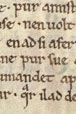 pur amist
e · nen uolt
en ad si afer
ne pur sue
umandet ap
ur q̃r ilad de